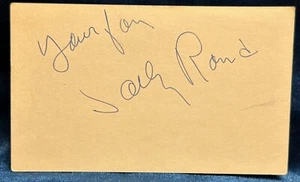 Your fan
Sally Rand